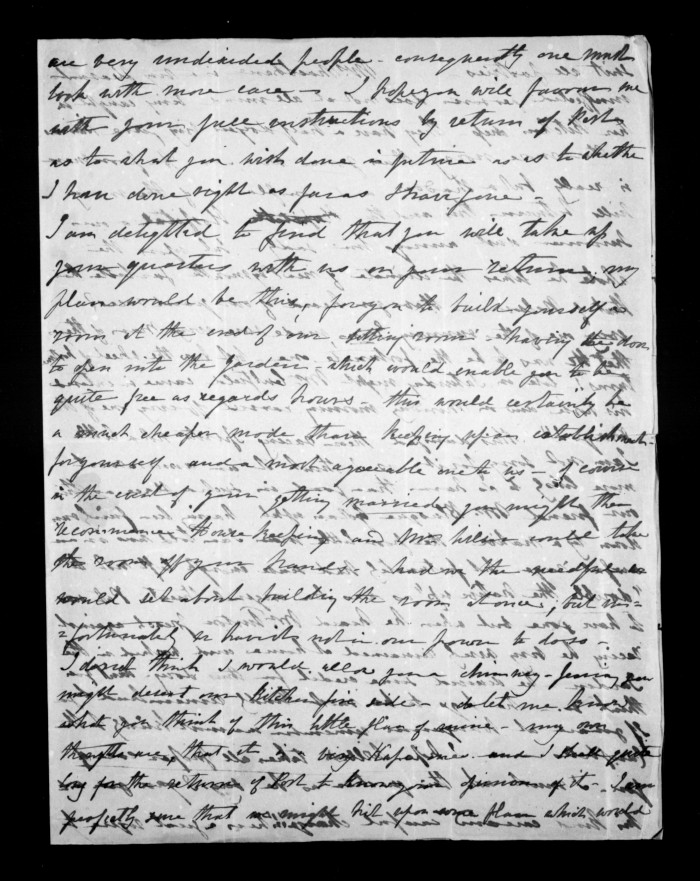 are very undecided people - consequently one must
look with more care - I hope you will favour me
with your full instructions by return of Post
as to what you wish done in future & as to whether
I have done right as far as I have gone -
I am delighted to find that you will take up
your quarters with us on your return. my
plan would be this, for you to build yourself a
room at the end of our sitting room having the door
to open into the garden - which would enable you to be
quite free as regards hours - this would certainly be
a much cheaper mode than keeping up an establishment
for yourself and a most agreeable one to us - of course
in the event of your getting married you might then
recommence House keeping and Mrs would take
the room off your hands - had we the needful we
would set about building the room at once, but un-
=fortunately we have it not in our power to do so -
I don't think I would need give a chimney - fearing you
might desert our kitchen fire side - do let me know
what you think of this little plan of mine - my own
thoughts are, that it is very "Kapai" and I shall quite
long for the return of Post to know your opinion of it - I am
perfectly sure that we might hit upon some plan which would